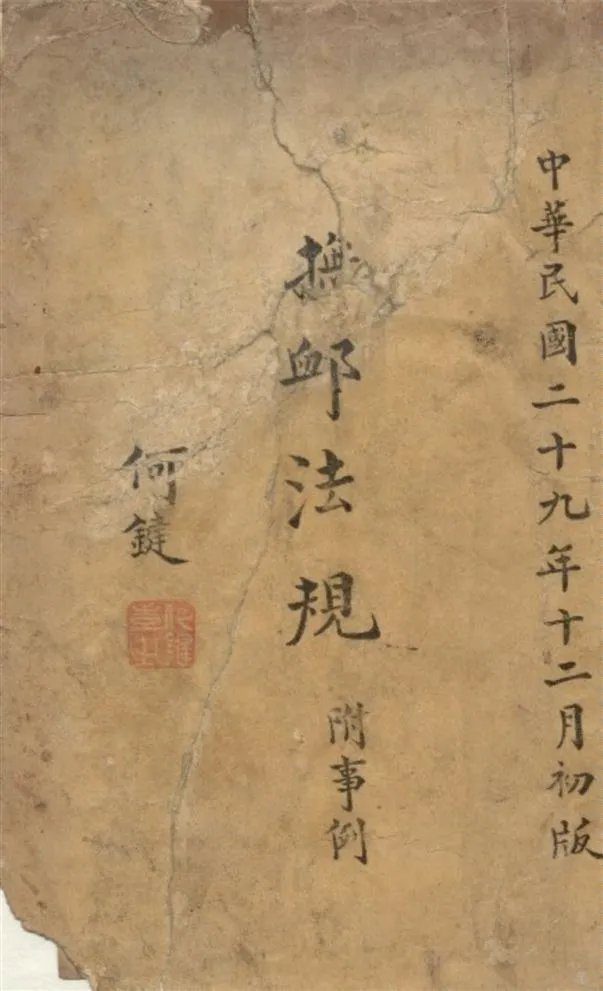 中華民國二十九年十二月初版
撫卹法規
附事例
何鍵